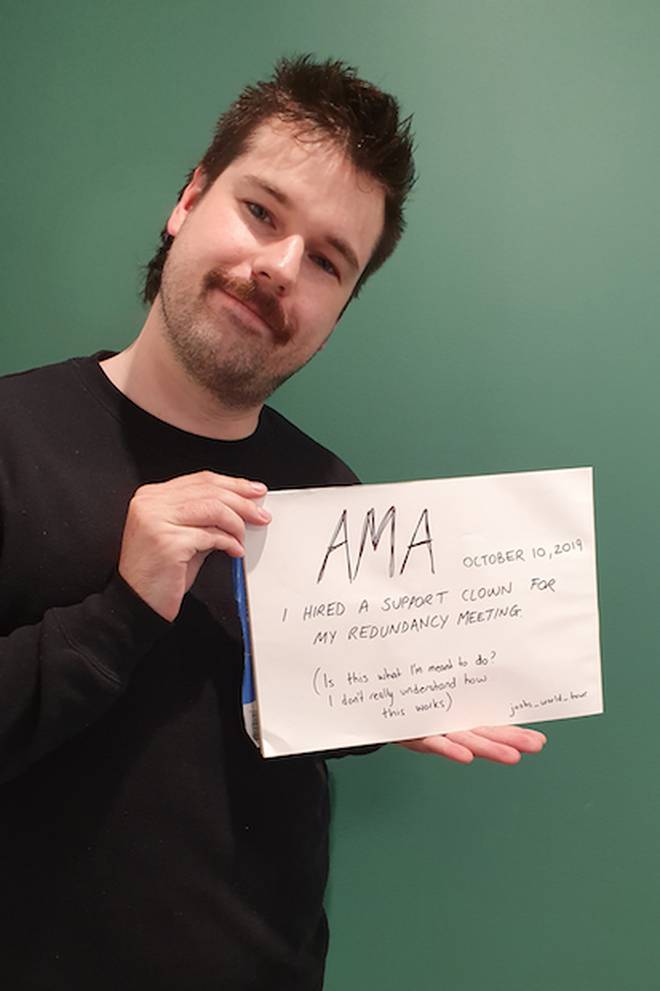 AMA
OCTOBER 10, 2019
I HIRED A SUPPORT CLOWN FOR
MY REDUNDANCY MEETING.
(Is this what I'm meant to do?
I don't really understand how
this works)
joshs_world_tour